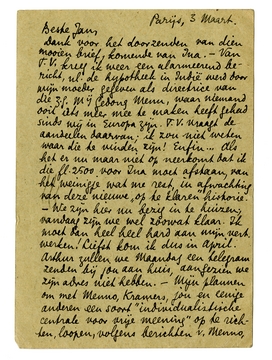 Parijs, 3 Maart.
Beste Jan,
Dank voor het doorzenden van dien
mooien brief, komende van Ina. – Van
P.V. kreeg ik weer een alarmeerend be-
richt, nl. de hypotheek in Indië werd door
mijn moeder gegeven als directrice van
die Mij Gedong Menu, waar niemand
ooit iets meer mee te maken heeft gehad
sinds wij in Europa zijn. P.V. vraagt de
aandeelen daarvan; ik zou niet weten
waar die te vinden zijn! Enfin... Als
het er nu maar niet op neerkomt dat ik
die fl. 2500 voor Ina moet afstaan, van
het weinigje wat me rest, in afwachting
van deze nieuwe, op te klaren historie.
– We zijn hier nu bezig in te huizen;
vandaag zijn we wel zoowat klaar. Ik
moet dan heel heel hard aan mijn vert.
werken! Liefst kom ik dus in April.
Arthur zullen we Maandag een telegram
zenden bij jou aan huis, aangezien we
zijn adres niet hebben. – Mijn plannen
om met Menno, Kramers, jou en eenige
anderen een soort "individualistische
centrale voor vrije meening" op te rich-
ten, loopen, volgens berichten v. Menno,